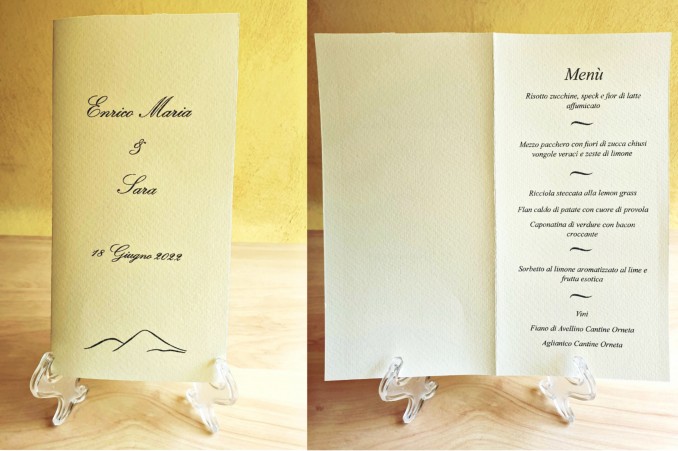 Enrico Maria
&
Sara
18 Giugno 2022
Menù
Risotto zucchine, speck e fior di latte
affumicato
Mezzo pacchero con fiori di zucca chiusi
vongole veraci e zeste di limone
Ricciola steccata alla lemon grass
Flan caldo di patate con cuore di provola
Caponatina di verdure con bacon
croccante
Sorbetto al limone aromatizzato al lime e
frutta esotica
Vini
Fiano di Avellino Cantine Orneta
Aglianico Cantine Orneta